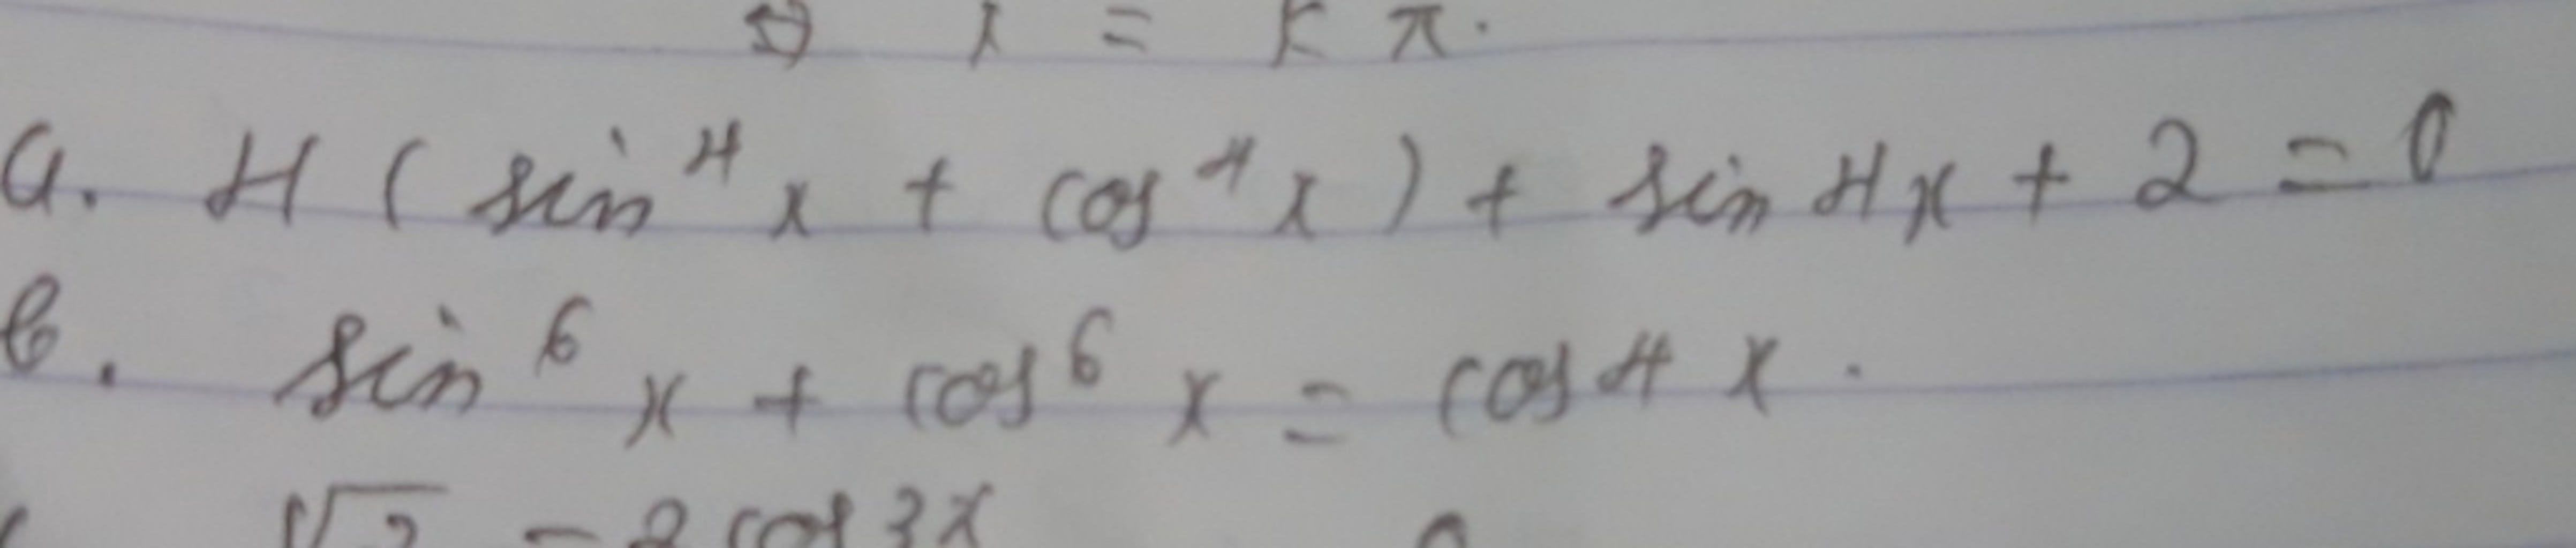 ⇔ x = kπ.
a. 4(sin⁴x + cos⁴x) + sin4x + 2 = 0
b. sin⁶x + cos⁶x = cos4x.
√2 - 2cos3x